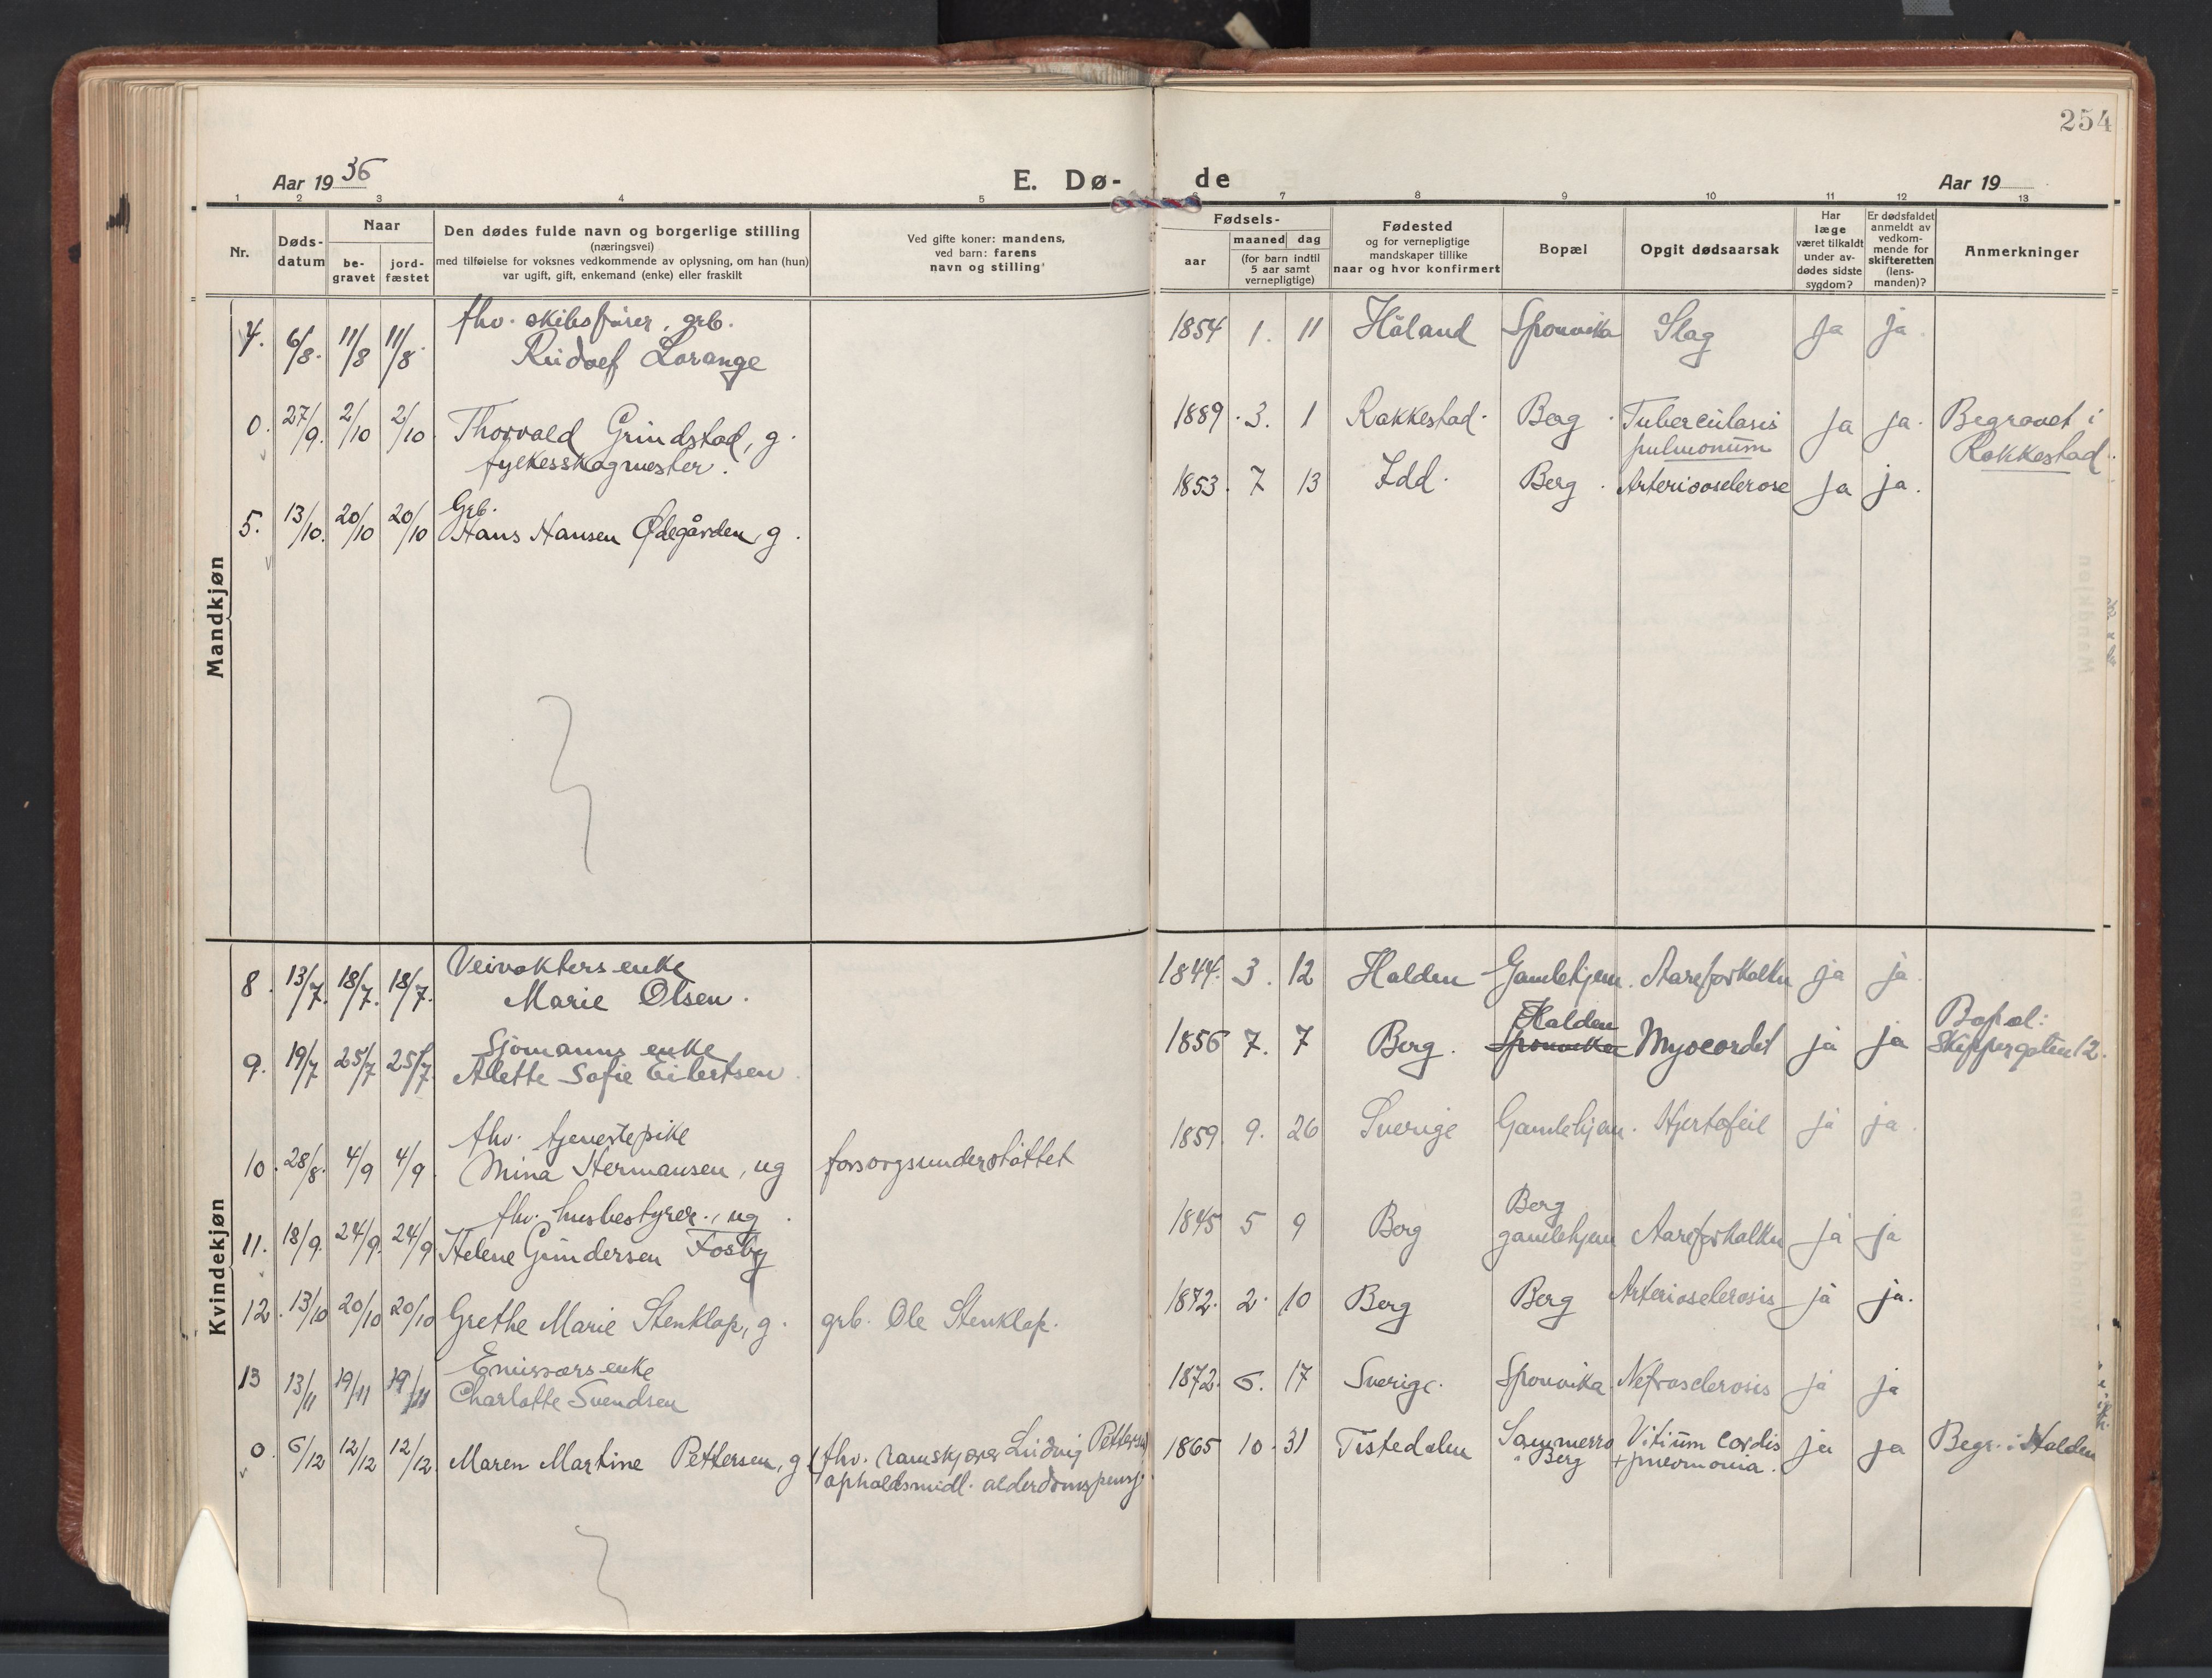 254
Aar 1936
E. Dø-
de
Aar 19
1 2 3 4 5 6 7 8 9 10 11 12 13
Nr.
Døds-
datum
Naar
be-
gravet
jord-
fæstet
Den dødes fulde navn og borgerlige stilling
(næringsvei)
med tilføielse for voksnes vedkommende av oplysning, om han (hun)
var ugift, gift, enkemand (enke) eller fraskilt
Ved gifte koner: mandens,
ved barn: farens
navn og stilling
Fødsels-
aar
maaned dag
(for barn indtil
5 aar samt
vernepligtige)
Fødested
og for vernepligtige
mandskaper tillike
naar og hvor konfirmert
Bopæl
Opgit dødsaarsak
Har
læge
været tilkaldt
under av-
dødes sidste
sygdom?
Er dødsfaldet
anmeldt av
vedkom-
mende for
skifteretten
(lens-
manden)?
Anmerkninger
Mandkjøn
4. 6/8. 11/8 11/8. fhv. skibsfører, grb.
Rudolf Lorange
1854 1. 11 Håland Sponvika Slag ja ja.
0. 27/9. 2/10 2/10. Thorvald Grindstad, g.
fylkesskogmester.
1889. 3. 1 Rakkestad. Berg. Tuberculosis
pulmonum
ja ja. Begravet i
Rakkestad.
5. 13/10. 20/10 20/10 Grb.
Hans Hansen Ødegården, g.
1853. 7 13 Idd. Berg. Arteriosclerose ja ja.
Kvindekjøn
8. 13/7. 18/7. 18/7. Veivokters enke
Marie Olsen.
1844. 3. 12 Halden Gamlehjem. Aareforkalkn ja ja.
9. 19/7 25/7 25/7. Sjømanns enke
Alette Sofie Eilertsen.
1856 7. 7 Berg. Halden
Sponvika
Myocordit ja ja Bopæl:
Skippergaten 12.
10. 28/8. 4/9 4/9. fhv. tjenestepike
Mina Hermansen, ug
forsorgsunderstøttet
1859. 9. 26 Sverige Gamlehjem. Hjertefeil ja ja.
11. 18/9. 24/9. 24/9 fhv. husbestyrer., ug.
Helene Gundersen Fosby
1845 5 9 Berg Berg
gamlehjem
Aareforkalkn ja ja
12. 13/10 20/10 20/10 Grethe Marie Stenklop, g. grb. Ole Stenklop.
1872. 2. 10 Berg Berg Arteriosclerosis ja ja.
13 13/11 19/11 19/11 Emissørs enke
Charlotte Svendsen
1872. 6. 17 Sverige. Sponvika Nefrosclerosis ja ja
0. 6/12 12/12 12/12. Maren Martine Pettersen, g. fhv. ramskjører Ludvig Pettersen
opholdsmidl. alderdomspensj.
1865 10. 31 Tistedalen Sommerro
i Berg
Vitium cordis
+ pneumonia.
ja ja Begr. i Halden